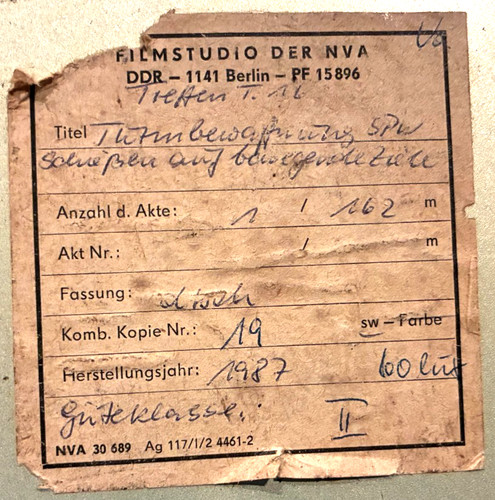 FILMSTUDIO DER NVA
DDR – 1141 Berlin – PF 15896
Treffen T. 11
Titel Turmbewaffnung SPW
Schießen auf bewegende Ziele
Anzahl d. Akte: 1 / 162 m
Akt Nr.: / m
Fassung: dtsch
Komb. Kopie Nr.: 19 sw – Farbe
Herstellungsjahr: 1987
Güteklasse: II
NVA 30 689 Ag 117/I/2 4461-2